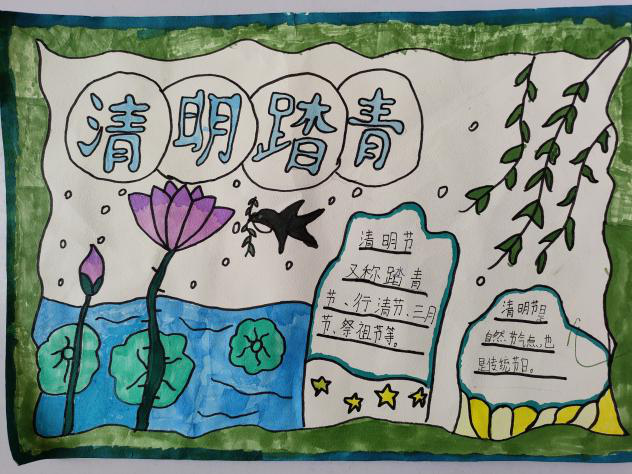 清明踏青
清明节
又称踏青
节、行清节、三月
节、祭祖节等。
清明节是
自然节气点,也
是传统节日。